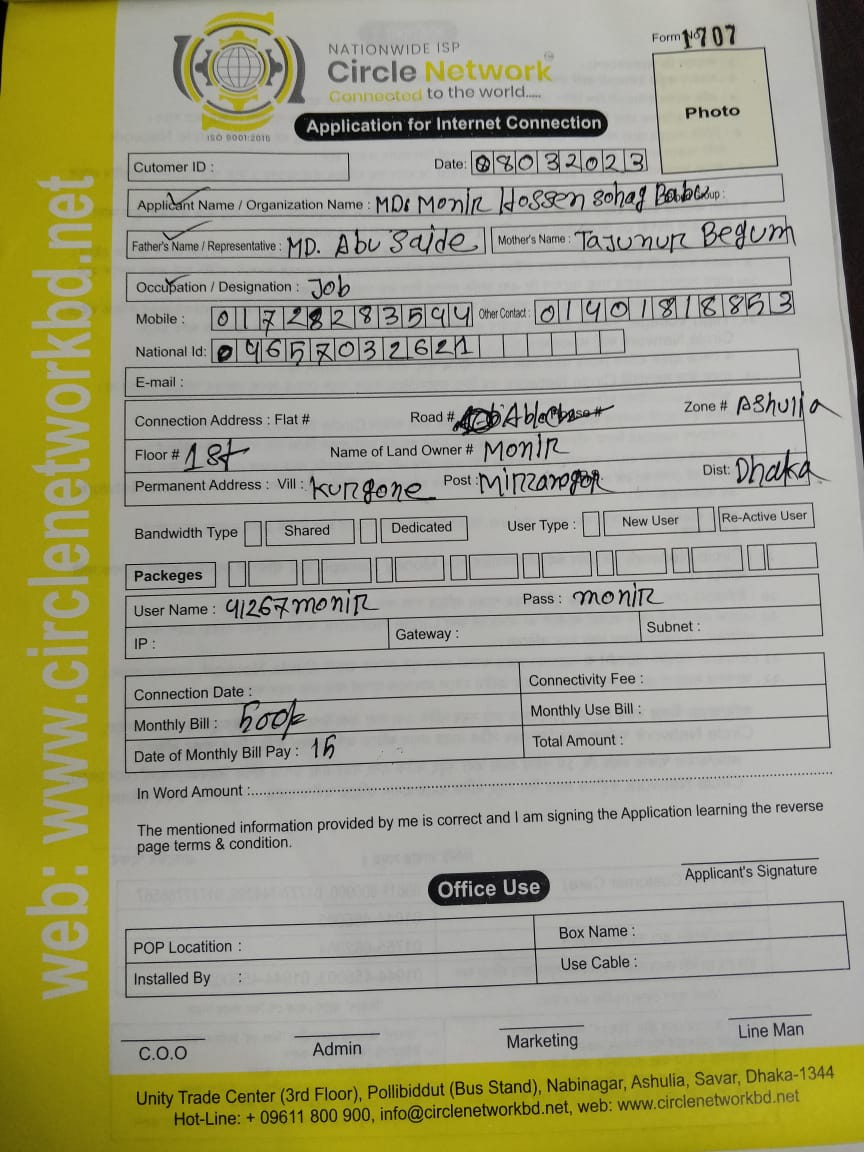 NATIONWIDE ISP
Circle Network
Connected to the world.....
ISO 9001:2015
Form No 1707
Photo
Application for Internet Connection
Cutomer ID :
Date: 08032023
Applicant Name / Organization Name : MD: MONIR Hossen Sohag Babu
Father's Name / Representative : MD. Abu Saide
Mother's Name : Tajunur Begum
Occupation / Designation : Job
Mobile : 01728283594
Other Contact : 01401818853
National Id: 04657032621
E-mail :
Connection Address : Flat #
Road #
Zone # Ashulia
Floor # 1st
Name of Land Owner # MONIR
Permanent Address : Vill : Kurgone
Post : Mirzanogor
Dist: Dhaka
Bandwidth Type
Shared
Dedicated
User Type :
New User
Re-Active User
Packeges
User Name : 41267monir
Pass : monir
IP :
Gateway :
Subnet :
Connection Date :
Connectivity Fee :
Monthly Bill : 500/-
Monthly Use Bill :
Date of Monthly Bill Pay : 15
Total Amount :
In Word Amount :
The mentioned information provided by me is correct and I am signing the Application learning the reverse
page terms & condition.
Applicant's Signature
Office Use
POP Locatition :
Box Name :
Installed By :
Use Cable :
C.O.O
Admin
Marketing
Line Man
Unity Trade Center (3rd Floor), Pollibiddut (Bus Stand), Nabinagar, Ashulia, Savar, Dhaka-1344
Hot-Line: + 09611 800 900, info@circlenetworkbd.net, web: www.circlenetworkbd.net
web: www.circlenetworkbd.net